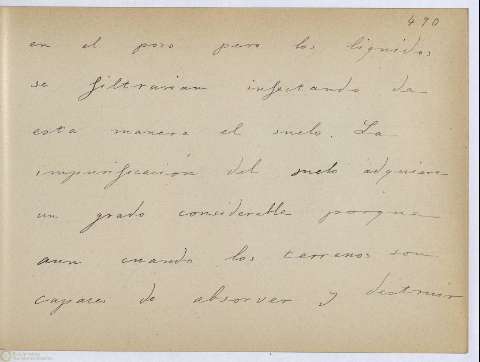 490
en el poso pero los liquidos
se filtrarian infectando de
esta manera el suelo. La
impurificación del suelo adquiere
un grado considerable porque
aun cuando los terrenos son
capaces de absorver y destruir